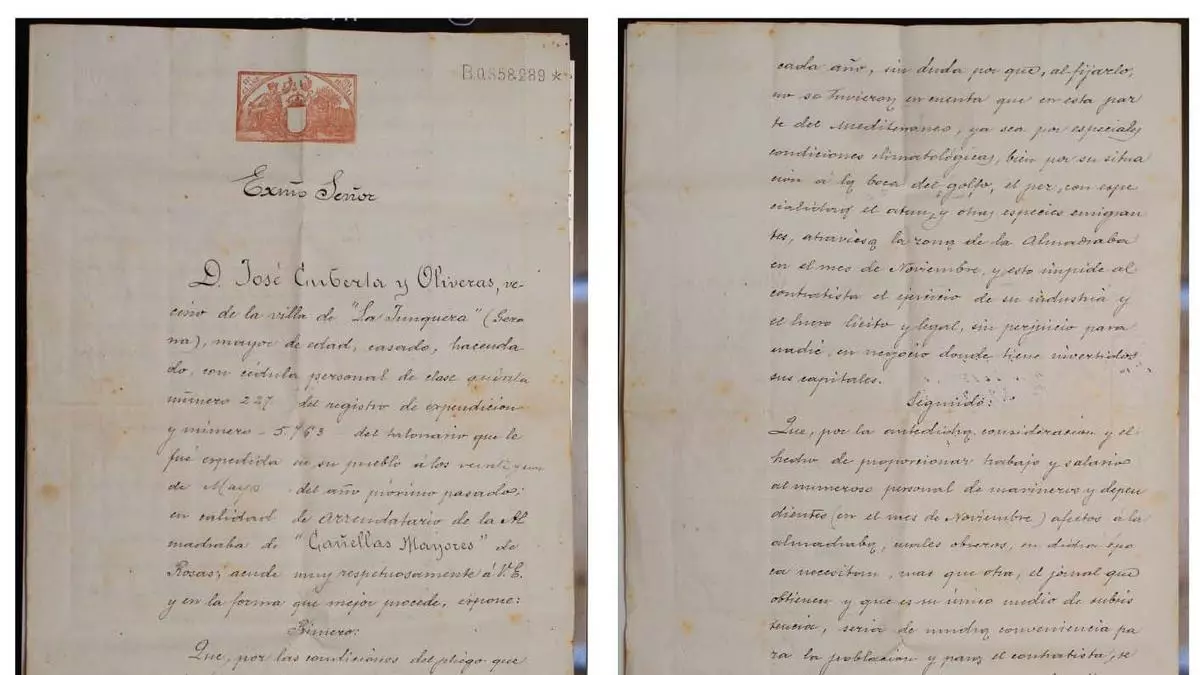 B.0.858.289 *
Exmo Señor
D. José Cusberta y Oliveras, ve-
cino de la villa de "La Junquera" (Gero
na), mayor de edad, casado, hacenda
do, con cédula personal de clase quinta
número 227 del registro de expendicion
y número - 5.763 - del talonario que le
fué expedida en su pueblo á los
de Mayo del año próximo pasado;
en calidad de arrendatario de la Al
madraba de "Cañellas Mayores" de
Rosas; acude muy respetuosamente á V.E.
y en la forma que mejor procede, expone:
Primero:
Que, por las condiciones del pliego que
cada año, sin duda por que, al fijarlo,
no se tuvieron en cuenta que en esta par
te del Mediterraneo, ya sea por especiales
condiciones climatológicas, bien por su situa
ción á la boca del golfo, el pez, con espe
cialidad el atun, y otras especies emigran
tes, atraviesa la zona de la Almadraba
en el mes de Noviembre, y esto impide al
contratista el ejercicio de su industria y
el lucro lícito y legal, sin perjuicio para
nadie, en negocio donde tiene invertidos
sus capitales.
Segundo:
Que, por la antedicha consideracion y el
hecho de proporcionar trabajo y salario
al numeroso personal de marineros y depen
dientes (en el mes de Noviembre) afectos á la
almadraba, cuales obreros, en dicha épo
ca necesitan, mas que otra, el jornal que
obtienen y que es su único medio de subsis
tencia, seria de mucha conveniencia pa
ra la poblacion y para el contratista, se